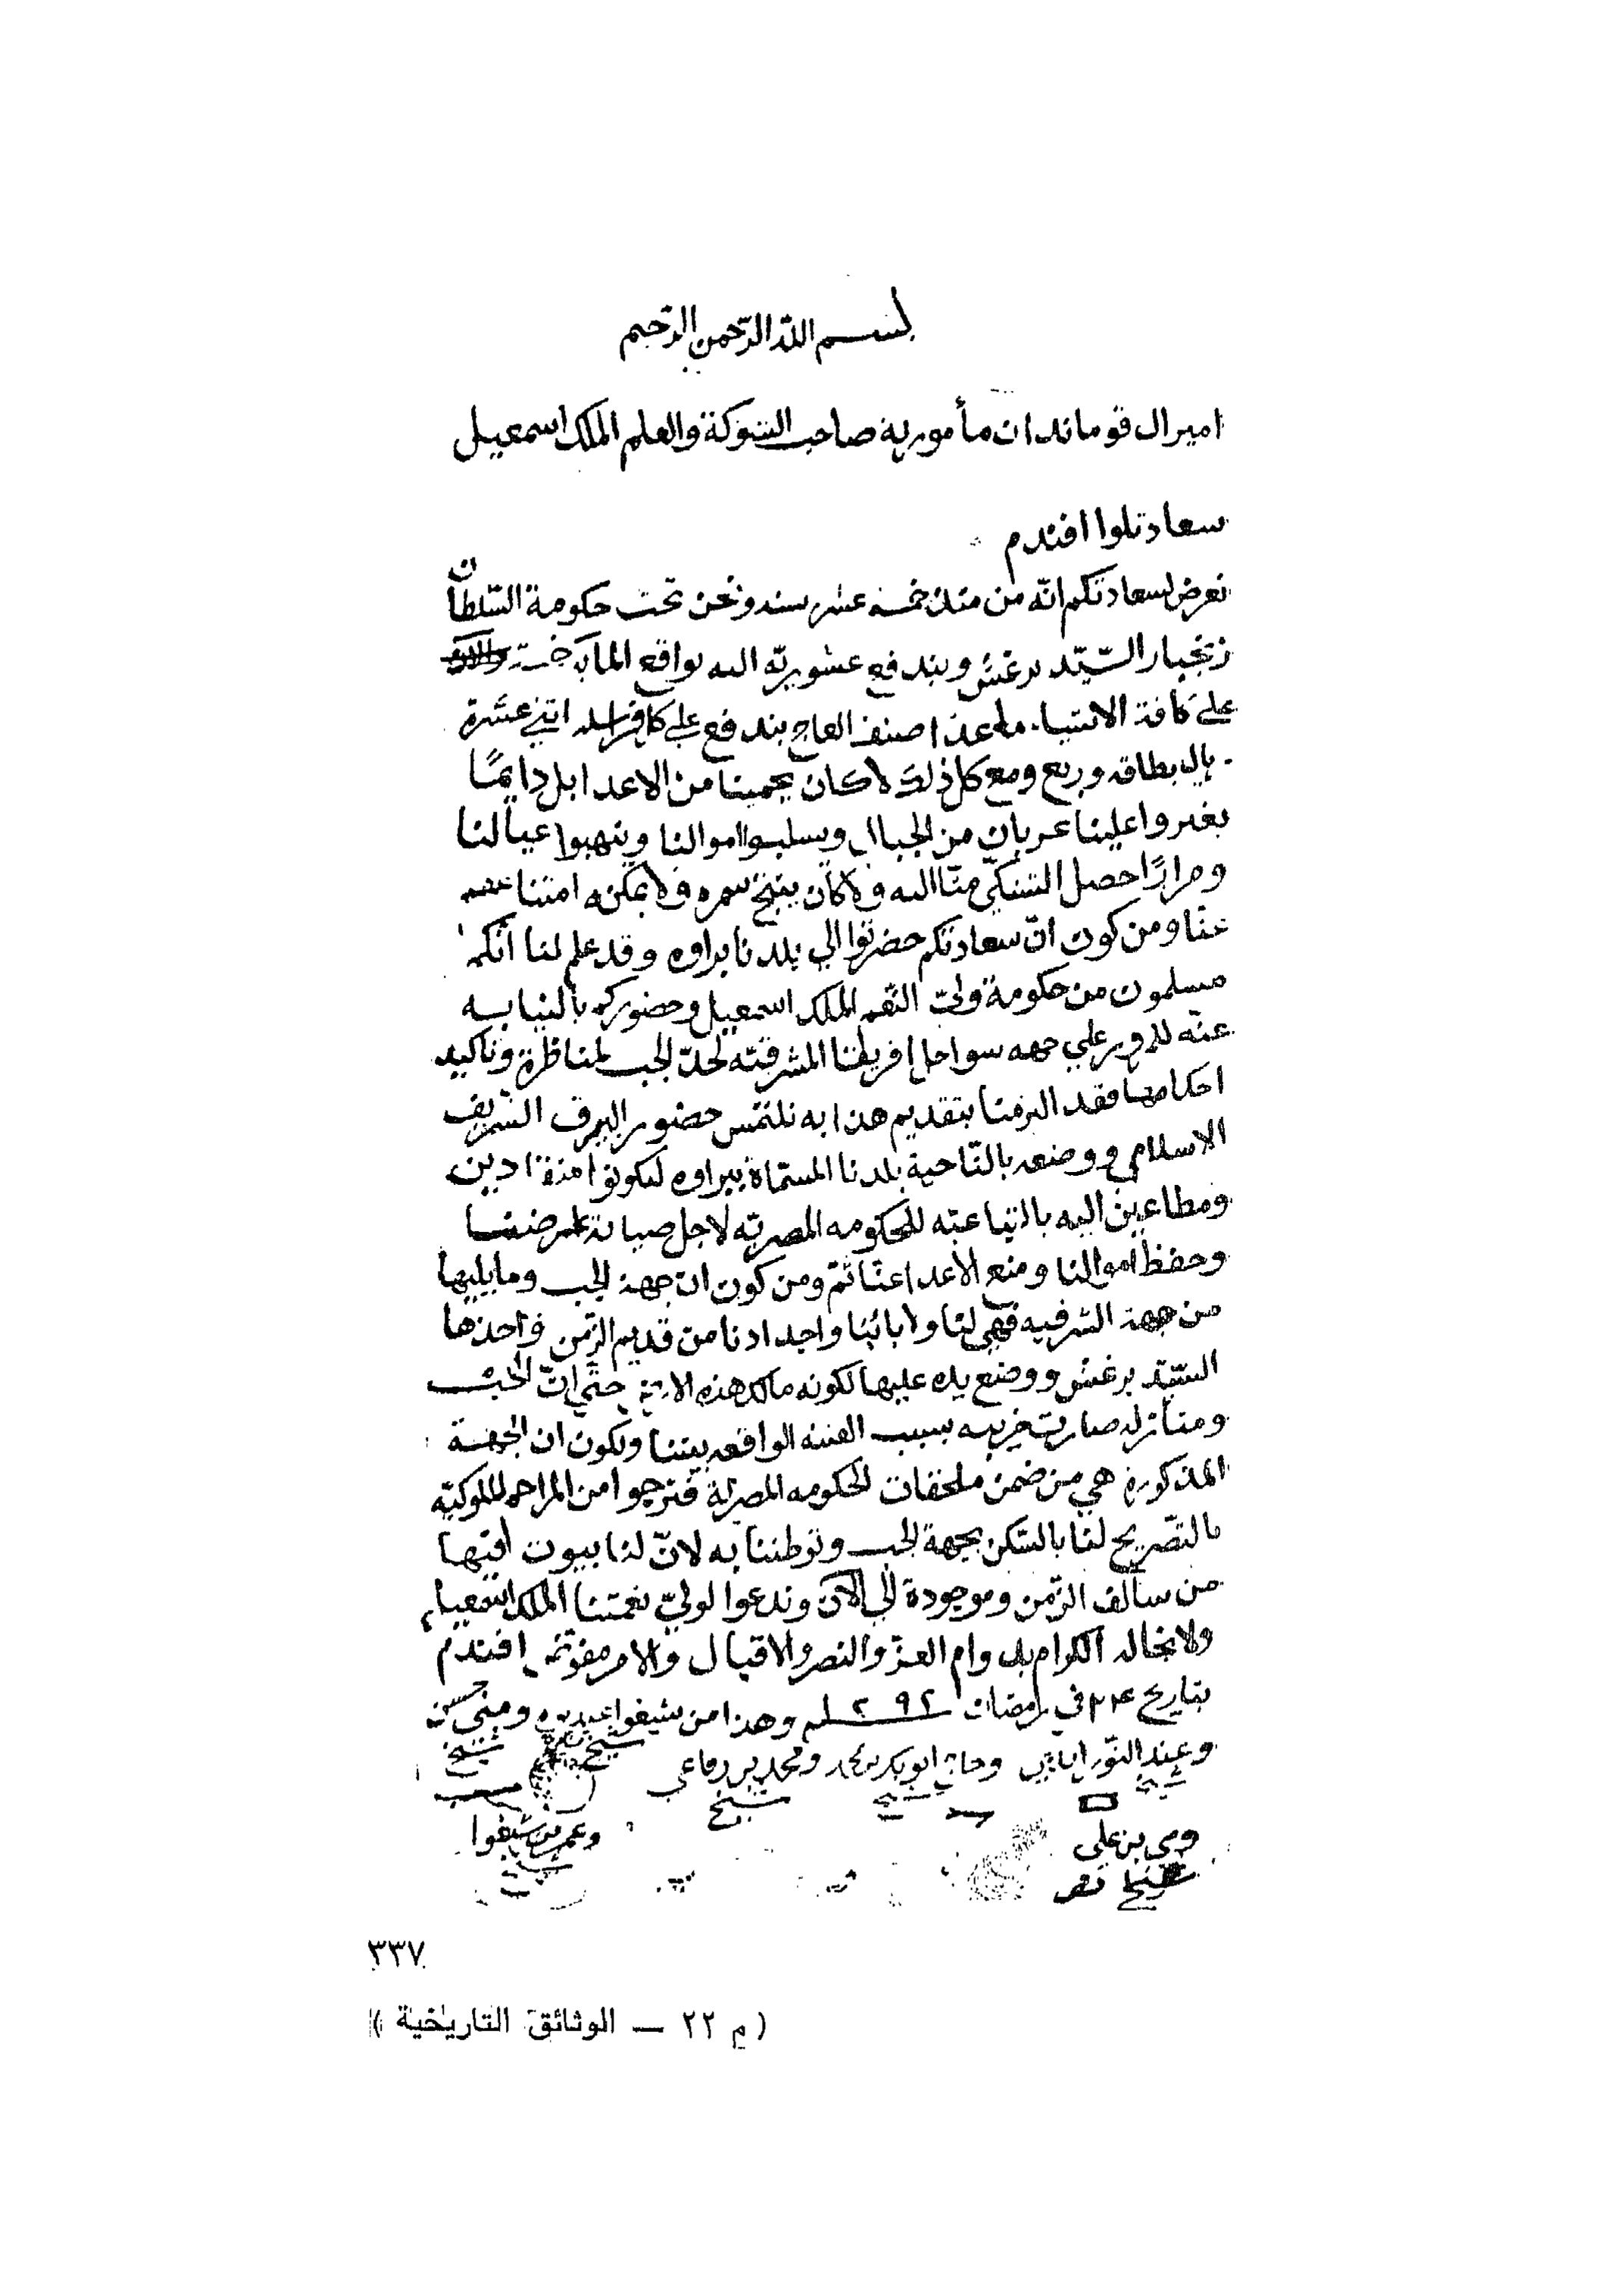 بسم الله الرحمن الرحيم
اميرال قوماندان مأمورية صاحب الشوكة والعلم الملك اسمعيل
سعادتلوا افندم
نعرض لسعادتكم انّه من منذ خمسه عشر سنه ونحن تحت حكومة السّلطان
زنجبار السّيّد برغش وبندفع عشوريّه اليه بواقع الماية خمسة
على كافة الاشيا ما عدا صنف العاج بندفع على كل فراسله اثني عشرة
ريال بطاقه وربع ومع كل ذلك لا كان يحمينا من الاعدا بل دايمًا
يغدروا علينا عربان من الجبال ويسلبوا اموالنا وينهبوا عيالنا
ومرارًا حصل التشكّي منّا اليه ولا كان ينتج ثمره ولا يمكنه امتناعهم
عنّا ومن كون انّ سعادتكم حضرتوا الي بلدنا براوه وقد علم لنا انّكم
مسلمون من حكومة وليّ النعم الملك اسمعيل وحضوركم بالنيابه
عنّه للمرور علي جهه سواحل افريقا المشرقيّه لحدّ الجب لمناظرة وتاكيد
احكامها فقد الزمنا بتقديم هذا به نلتمس حضور البيرق الشريف
الاسلامي ووضعه بالنّاحية بلدنا المسمّاة ببراوه لنكونوا منقادين
ومطاعين اليه بالتباعيّه للحكومه المصريّه لاجل صيانة عرضنا
وحفظ اموالنا ومنع الاعدا عنّا ثمّ ومن كون ان جهة الجب وما يليها
من جهة الشرقيه فهي لنا ولابائنا واجدادنا من قديم الزّمن واخذها
السّيّد برغش ووضع يده عليها لكونه مالك هذه حتّي انّ الجب
ومنازله صارت خربه بسبب الفتنه الواقعه بيننا ولكون ان الجهة
المذكورة هي من ضمن ملحقات الحكومه المصريّة فنترجوا من المراحم الملوكيّه
بالتّصريح لنا بالسّكن بجهة الجب وتوطننا به لانّ لنا بيوت فيها
من سالف الزّمن وموجودة الي الآن وندعوا لوليّ نعمتنا الملك اسمعيل
ولانجاله الكرام بدوام العزّ والنصر والاقبال والامر مفوّض افندم
بتاريخ ٢٤ في رمضان ٢٩٢ سنه وهذا من شيفوا ومنى حسن
وعبد النّور وحاج ابو بكر محمد ومحمد بن رفاعي
شيخ شيخ شيخ شيخ
بن علي وعمر بن شيفوا
شيخ
٣٣٧
( م ٢٢ — الوثائق التاريخية )